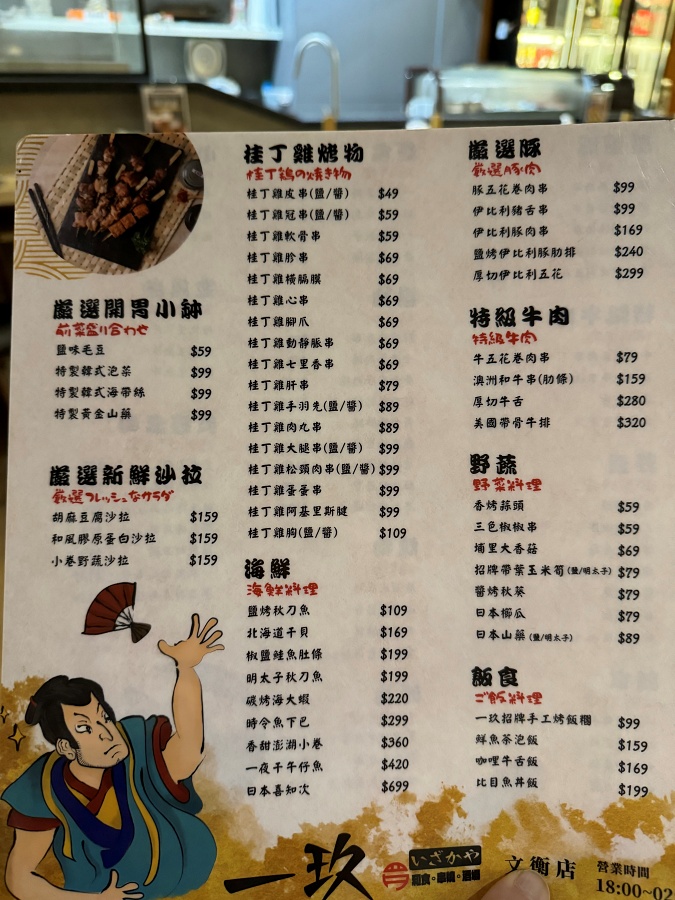 嚴選開胃小缽
前菜盛り合わせ
鹽味毛豆 $59
特製韓式泡菜 $99
特製韓式海帶絲 $99
特製黃金山藥 $99
嚴選新鮮沙拉
厳選フレッシュなサラダ
胡麻豆腐沙拉 $159
和風膠原蛋白沙拉 $159
小卷野蔬沙拉 $159
桂丁雞烤物
桂丁鶏の焼き物
桂丁雞皮串(鹽/醬) $49
桂丁雞冠串(鹽/醬) $59
桂丁雞軟骨串 $59
桂丁雞胗串 $69
桂丁雞橫膈膜 $69
桂丁雞心串 $69
桂丁雞腳爪 $69
桂丁雞動靜脈串 $69
桂丁雞七里香串 $69
桂丁雞肝串 $79
桂丁雞手羽先(鹽/醬) $89
桂丁雞肉丸串 $89
桂丁雞大腿串(鹽/醬) $99
桂丁雞松頸肉串(鹽/醬) $99
桂丁雞蛋蛋串 $99
桂丁雞阿基里斯腱 $99
桂丁雞胸(鹽/醬) $109
海鮮
海鮮料理
鹽烤秋刀魚 $109
北海道干貝 $169
椒鹽鮭魚肚條 $199
明太子秋刀魚 $199
碳烤海大蝦 $220
時令魚下巴 $299
香甜澎湖小卷 $360
一夜干午仔魚 $420
日本喜知次 $699
嚴選豚
厳選豚肉
豚五花卷肉串 $99
伊比利豬舌串 $99
伊比利豚肉串 $169
鹽烤伊比利豚肋排 $240
厚切伊比利五花 $299
特級牛肉
特級牛肉
牛五花卷肉串 $79
澳洲和牛串(肋條) $159
厚切牛舌 $280
美國帶骨牛排 $320
野蔬
野菜料理
香烤蒜頭 $59
三色椒椒串 $59
埔里大香菇 $69
招牌帶葉玉米筍(鹽/明太子) $79
醬烤秋葵 $79
日本櫛瓜 $79
日本山藥(鹽/明太子) $89
飯食
ご飯料理
一玖招牌手工烤飯糰 $99
鮮魚茶泡飯 $159
咖哩牛舌飯 $169
比目魚丼飯 $199
一玖
いざかや
和食・串燒・酒場
文衡店
營業時間
18:00~02